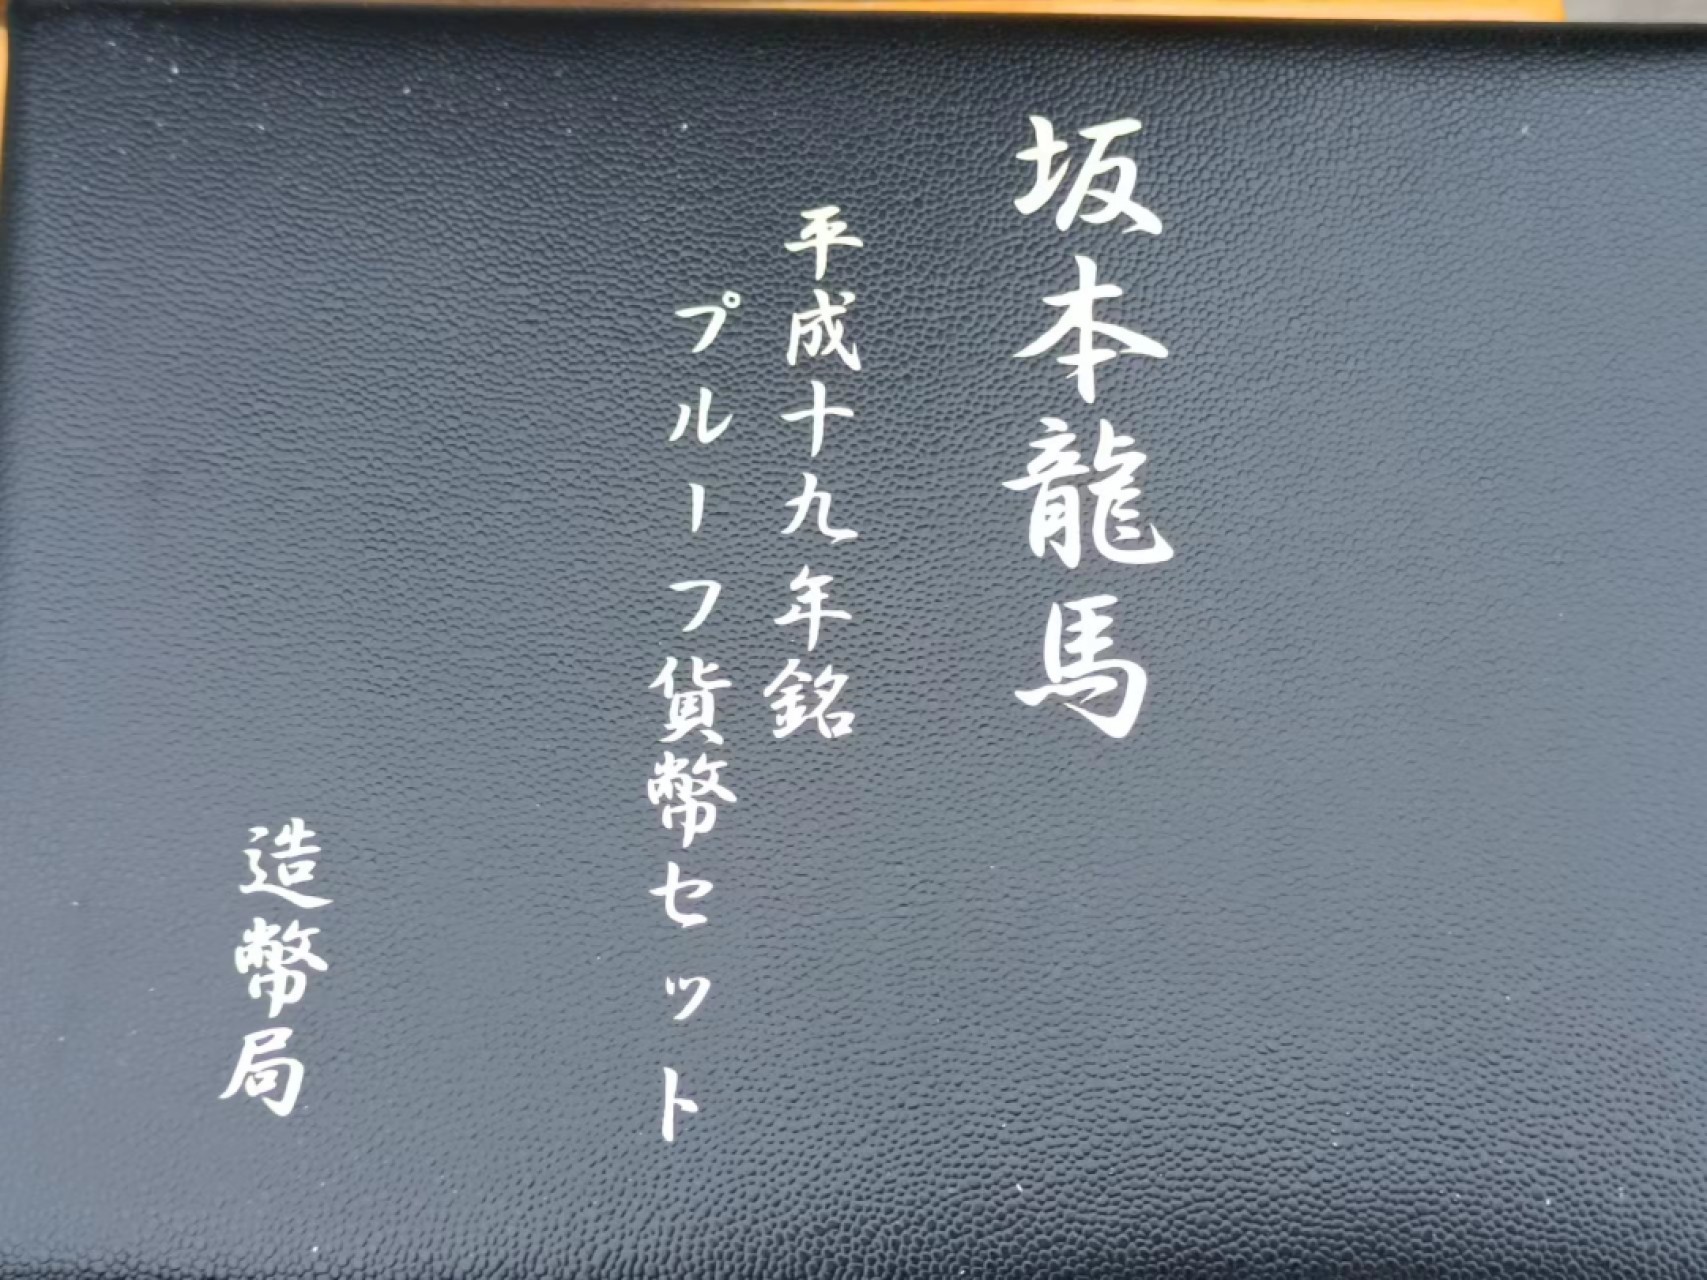 坂本龍馬
平成十九年銘
プルーフ貨幣セット
造幣局